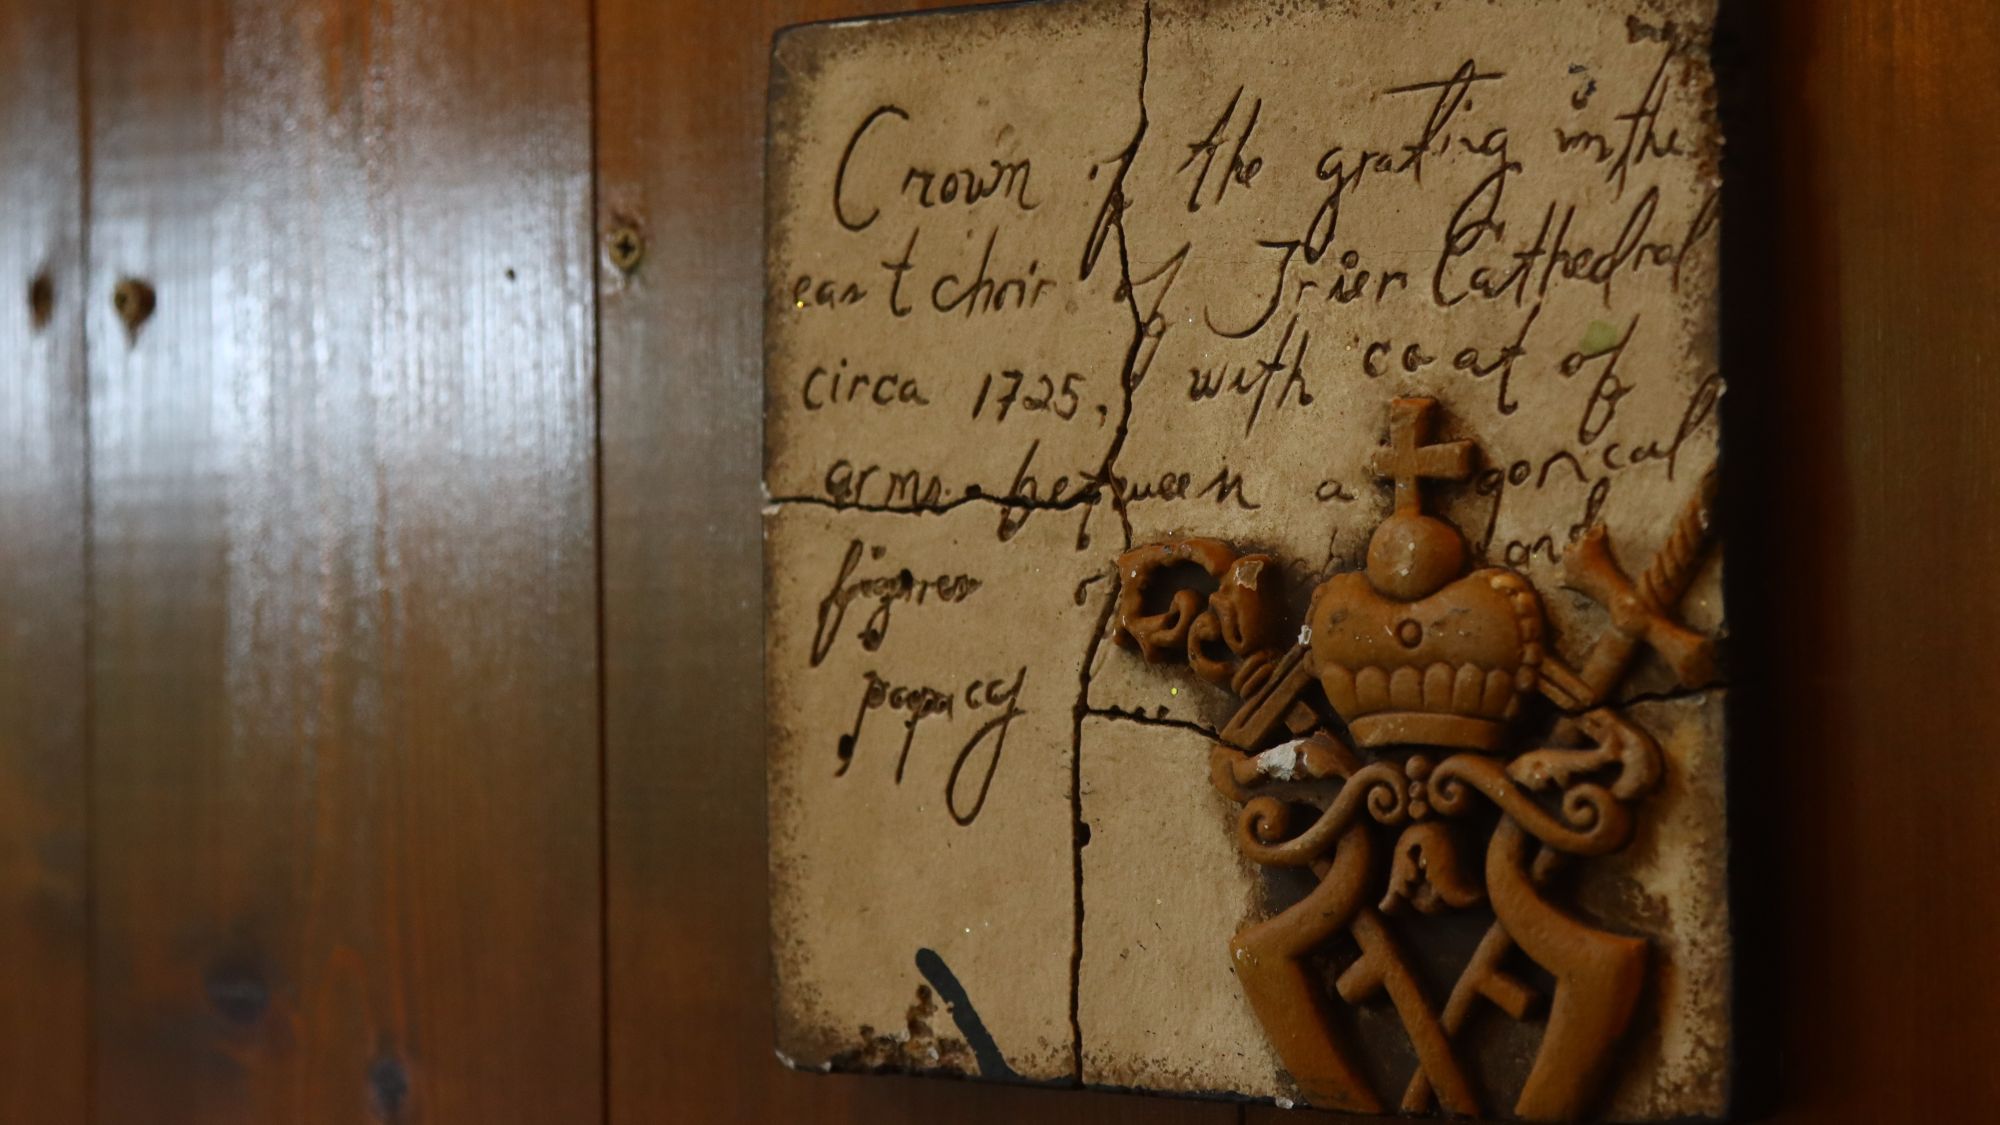 Crown of the grating in the
east choir of Trier Cathedral
circa 1725, with coat of
arms between a gorical
figures and
papacy